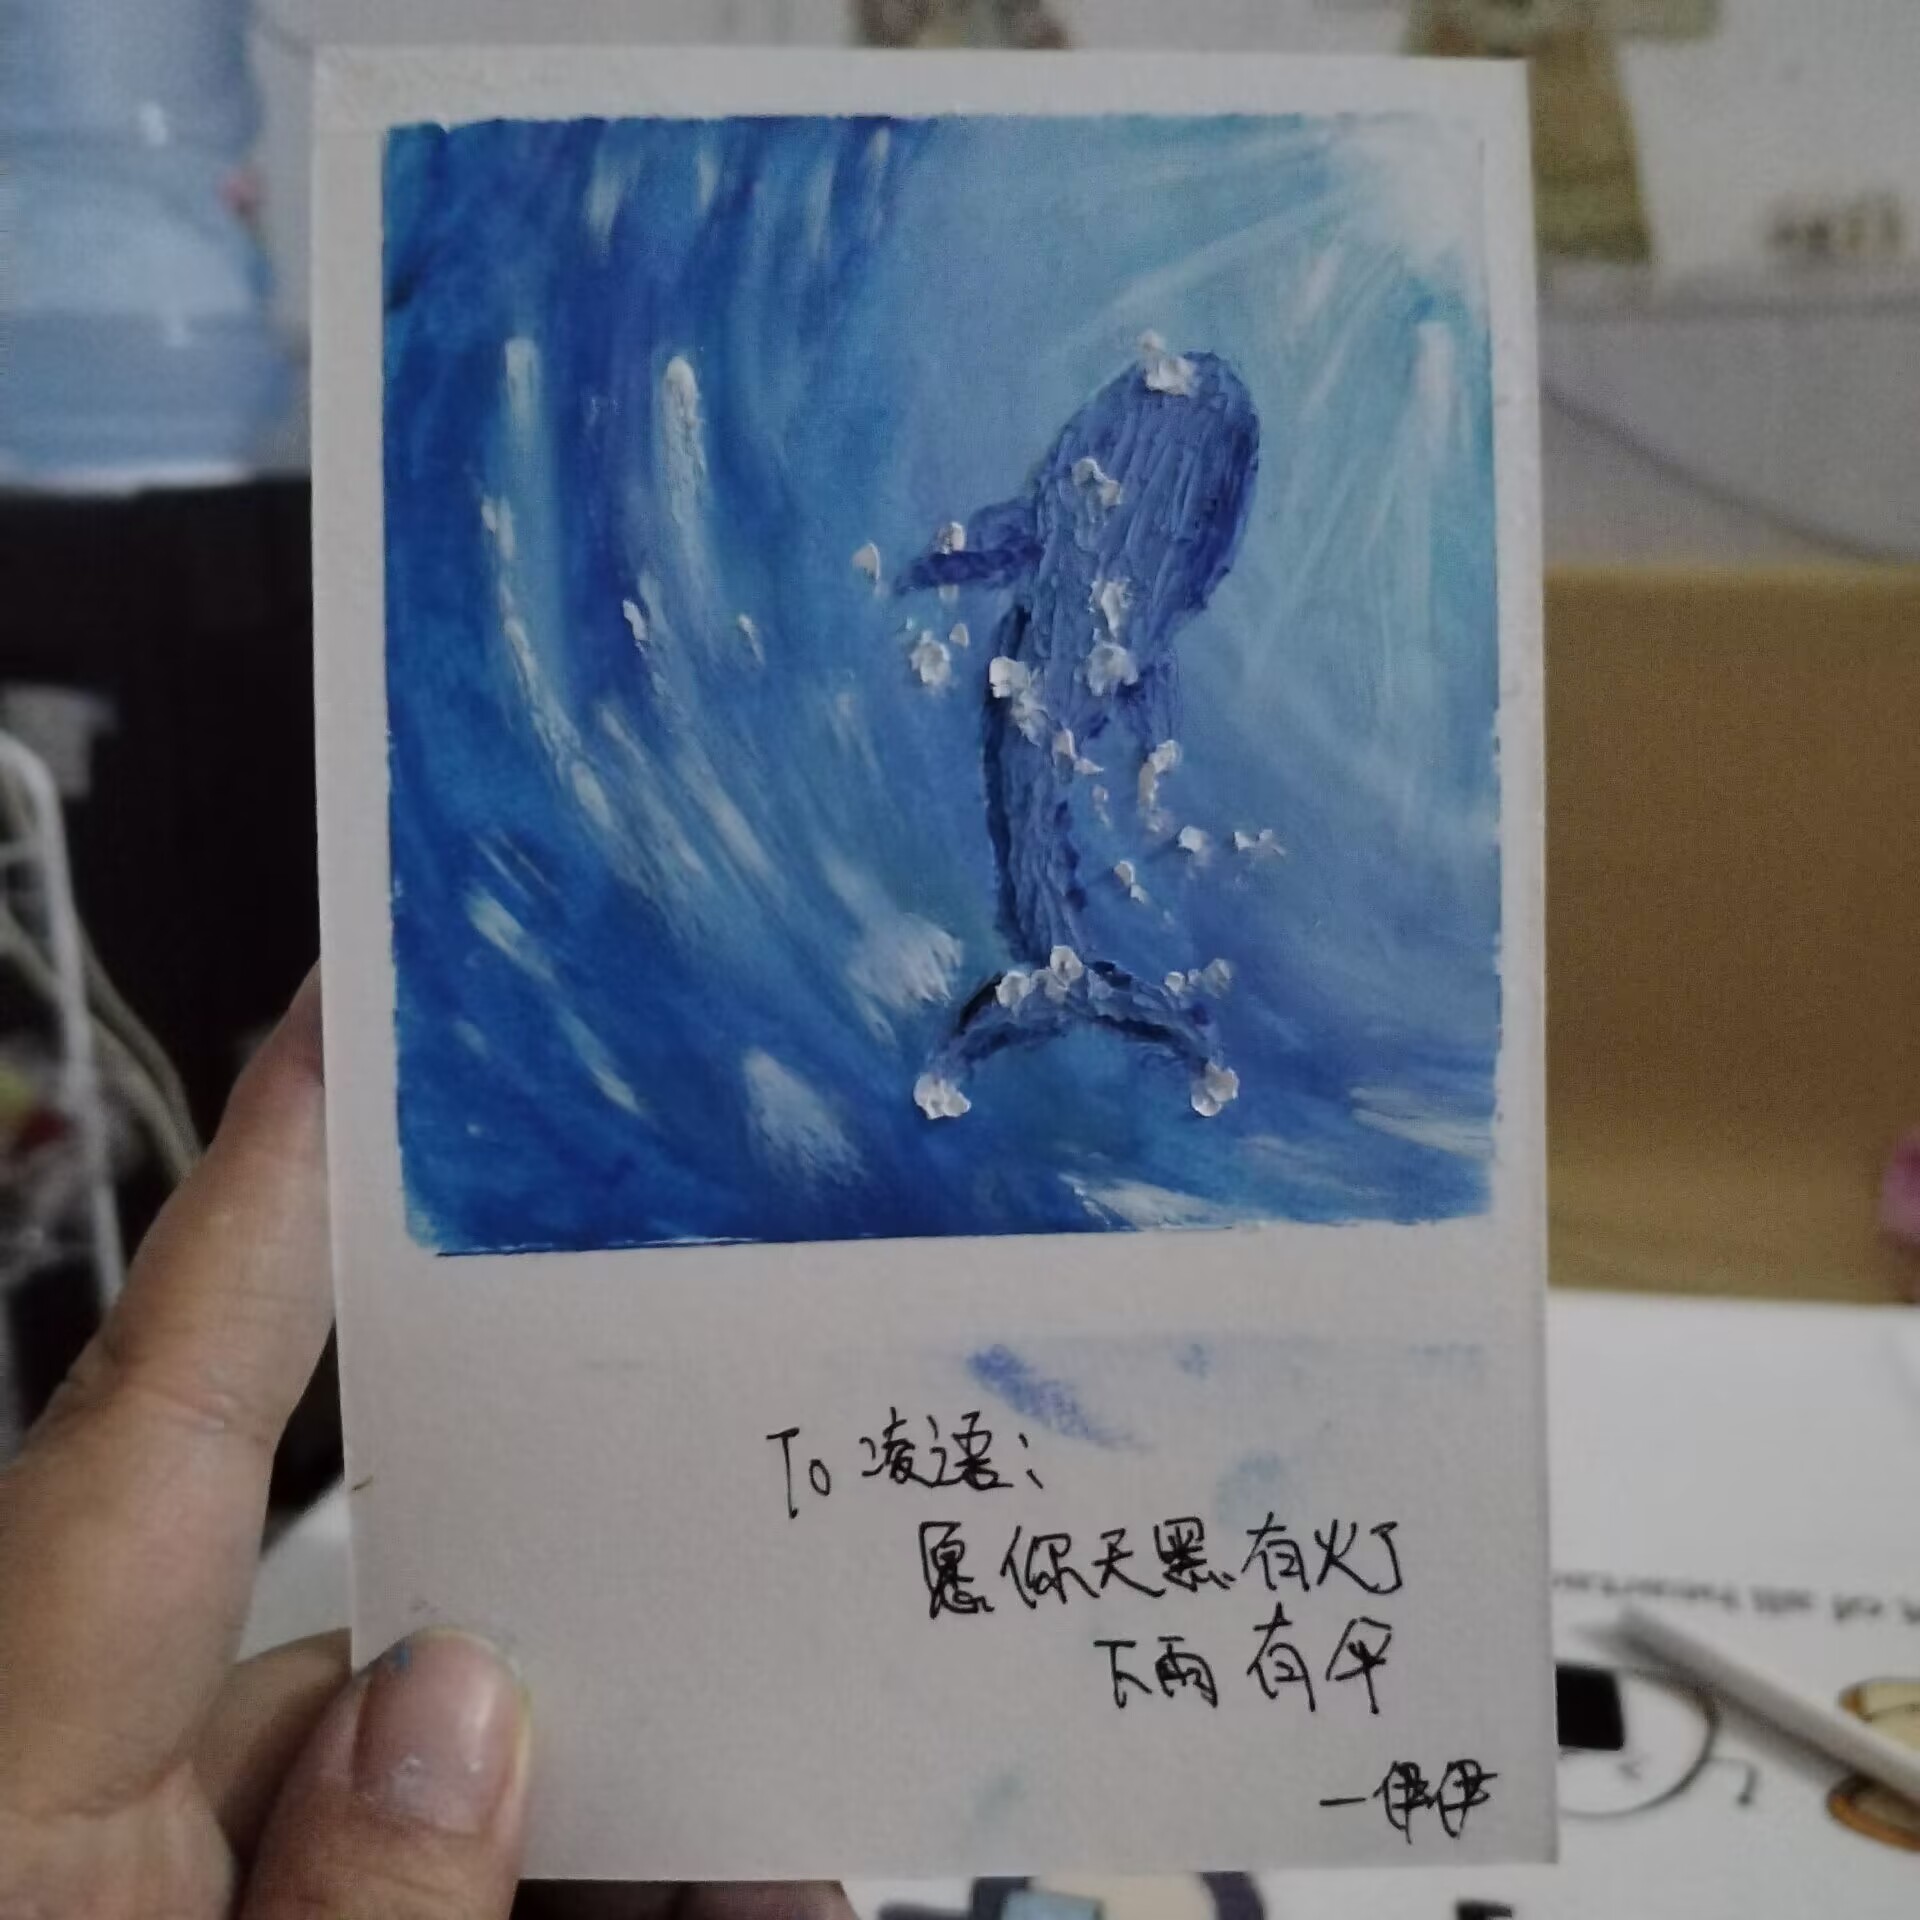 To 凌语:
愿你天黑有灯
下雨有伞
—伊伊